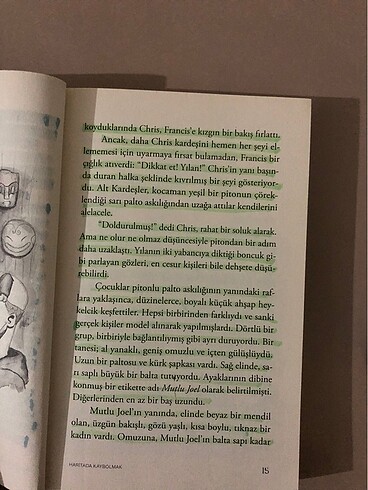 koyduklarında Chris, Francis'e kızgın bir bakış fırlattı.
Ancak, daha Chris kardeşini hemen her şeyi el-
lememesi için uyarmaya fırsat bulamadan, Francis bir
çığlık atıverdi: "Dikkat et! Yılan!" Chris'in yanı başın-
da duran halka şeklinde kıvrılmış bir şeyi gösteriyor-
du. Alt Kardeşler, kocaman yeşil bir pitonun çörek-
lendiği sarı palto askılığından uzağa attılar kendilerini
alelacele.
"Doldurulmuş!" dedi Chris, rahat bir soluk alarak.
Ama ne olur ne olmaz düşüncesiyle pitondan bir adım
daha uzaklaştı. Yılanın iki yabancıya diktiği boncuk gi-
bi parlayan gözleri, en cesur kişileri bile dehşete düşü-
rebilirdi.
Çocuklar pitonlu palto askılığının yanındaki raf-
lara yaklaşınca, düzinelerce, boyalı küçük ahşap hey-
kelcik keşfettiler. Hepsi birbirinden farklıydı ve sanki
gerçek kişiler model alınarak yapılmışlardı. Dörtlü bir
grup, birbiriyle bağlantılıymış gibi ayrı duruyordu. Bir
tanesi; al yanaklı, geniş omuzlu ve içten gülüşlüydü.
Uzun bir paltosu ve kürk şapkası vardı. Sağ elinde, sa-
rı saplı büyük bir balta tutuyordu. Ayaklarının dibine
konmuş bir etikette adı Mutlu Joel olarak belirtilmişti.
Diğerlerinden en az bir baş uzundu.
Mutlu Joel'ın yanında, elinde beyaz bir mendil
olan, üzgün bakışlı, gözü yaşlı, kısa boylu, tıknaz bir
kadın vardı. Omuzuna, Mutlu Joel'ın balta sapı kadar
HARİTADA KAYBOLMAK
15